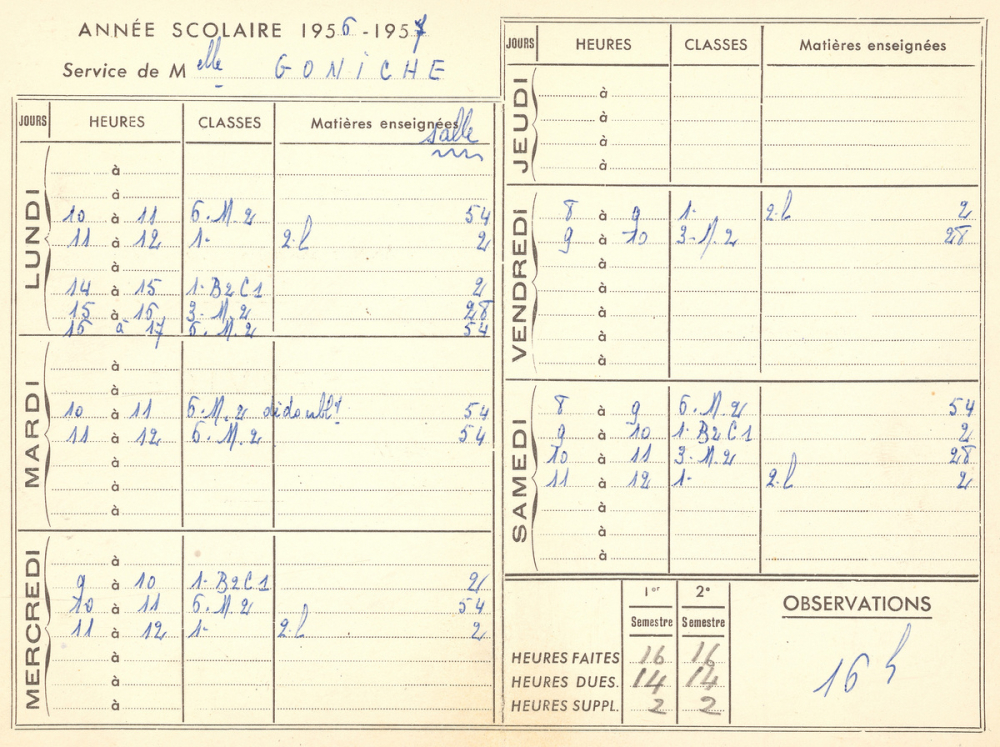 ANNÉE SCOLAIRE 1956-1957
Service de Melle GONICHE
JOURS HEURES CLASSES Matières enseignées salle
LUNDI
à
à
10 à 11 6. M. 2 54
11 à 12 1. 2. l 2
à
14 à 15 1. B2C1 2
15 à 16 3. M. 2 28
16 à 17 6. M. 2 54
MARDI
à
à
10 à 11 6. M. 2 dédoublé 54
11 à 12 6. M. 2 54
à
à
à
MERCREDI
à
9 à 10 1. B2C1 2
10 à 11 6. M. 2 54
11 à 12 1. 2. l 2
à
à
à
JOURS HEURES CLASSES Matières enseignées
JEUDI
à
à
à
à
VENDREDI
8 à 9 1. 2. l 2
9 à 10 3. M. 2 28
à
à
à
à
à
SAMEDI
8 à 9 6. M. 2 54
9 à 10 1. B2C1 2
10 à 11 3. M. 2 28
11 à 12 1. 2. l 2
à
à
à
1er Semestre 2e Semestre
HEURES FAITES 16 16
HEURES DUES. 14 14
HEURES SUPPL. 2 2
OBSERVATIONS
16 h